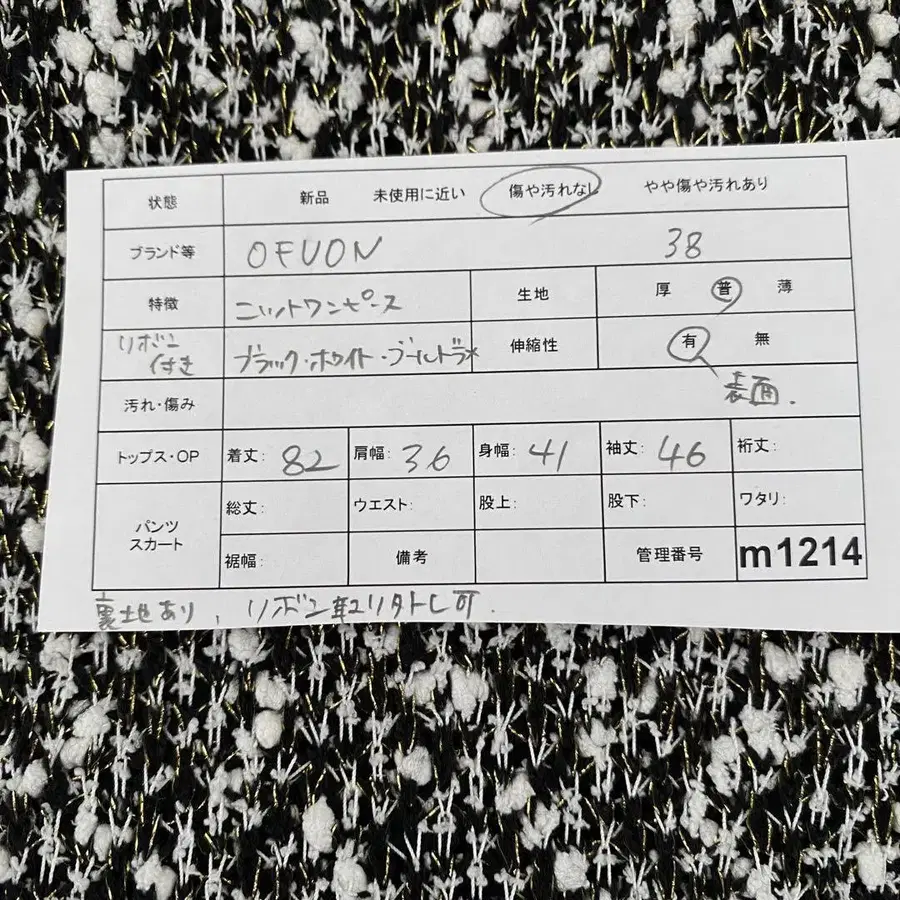 状態 新品 未使用に近い 傷や汚れなし やや傷や汚れあり
ブランド等 OFUON 38
特徴 ニットワンピース 生地 厚 普 薄
リボン付き ブラック・ホワイト・ゴールドラメ 伸縮性 有 無
表面.
汚れ・傷み
トップス・OP 着丈: 82 肩幅: 36 身幅: 41 袖丈: 46 裄丈:
パンツ スカート 総丈: ウエスト: 股上: 股下: ワタリ:
裾幅: 備考 管理番号 m1214
裏地あり、リボン取りタトし可.